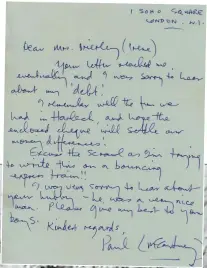 1 SOHO SQUARE
LONDON. W.1.
Dear Mrs. Brierley (Irene)
Your letter reached me
eventually and I was sorry to hear
about my 'debt'.
I remember well the fun we
had in Harlech, and hope the
enclosed cheque will settle our
money differences!
Excuse the scrawl as I'm trying
to write this on a bouncing
express train!!
I was very sorry to hear about
your hubby – he was a very nice
man. Please give my best to your
boys. Kindest regards,
Paul (McCartney)